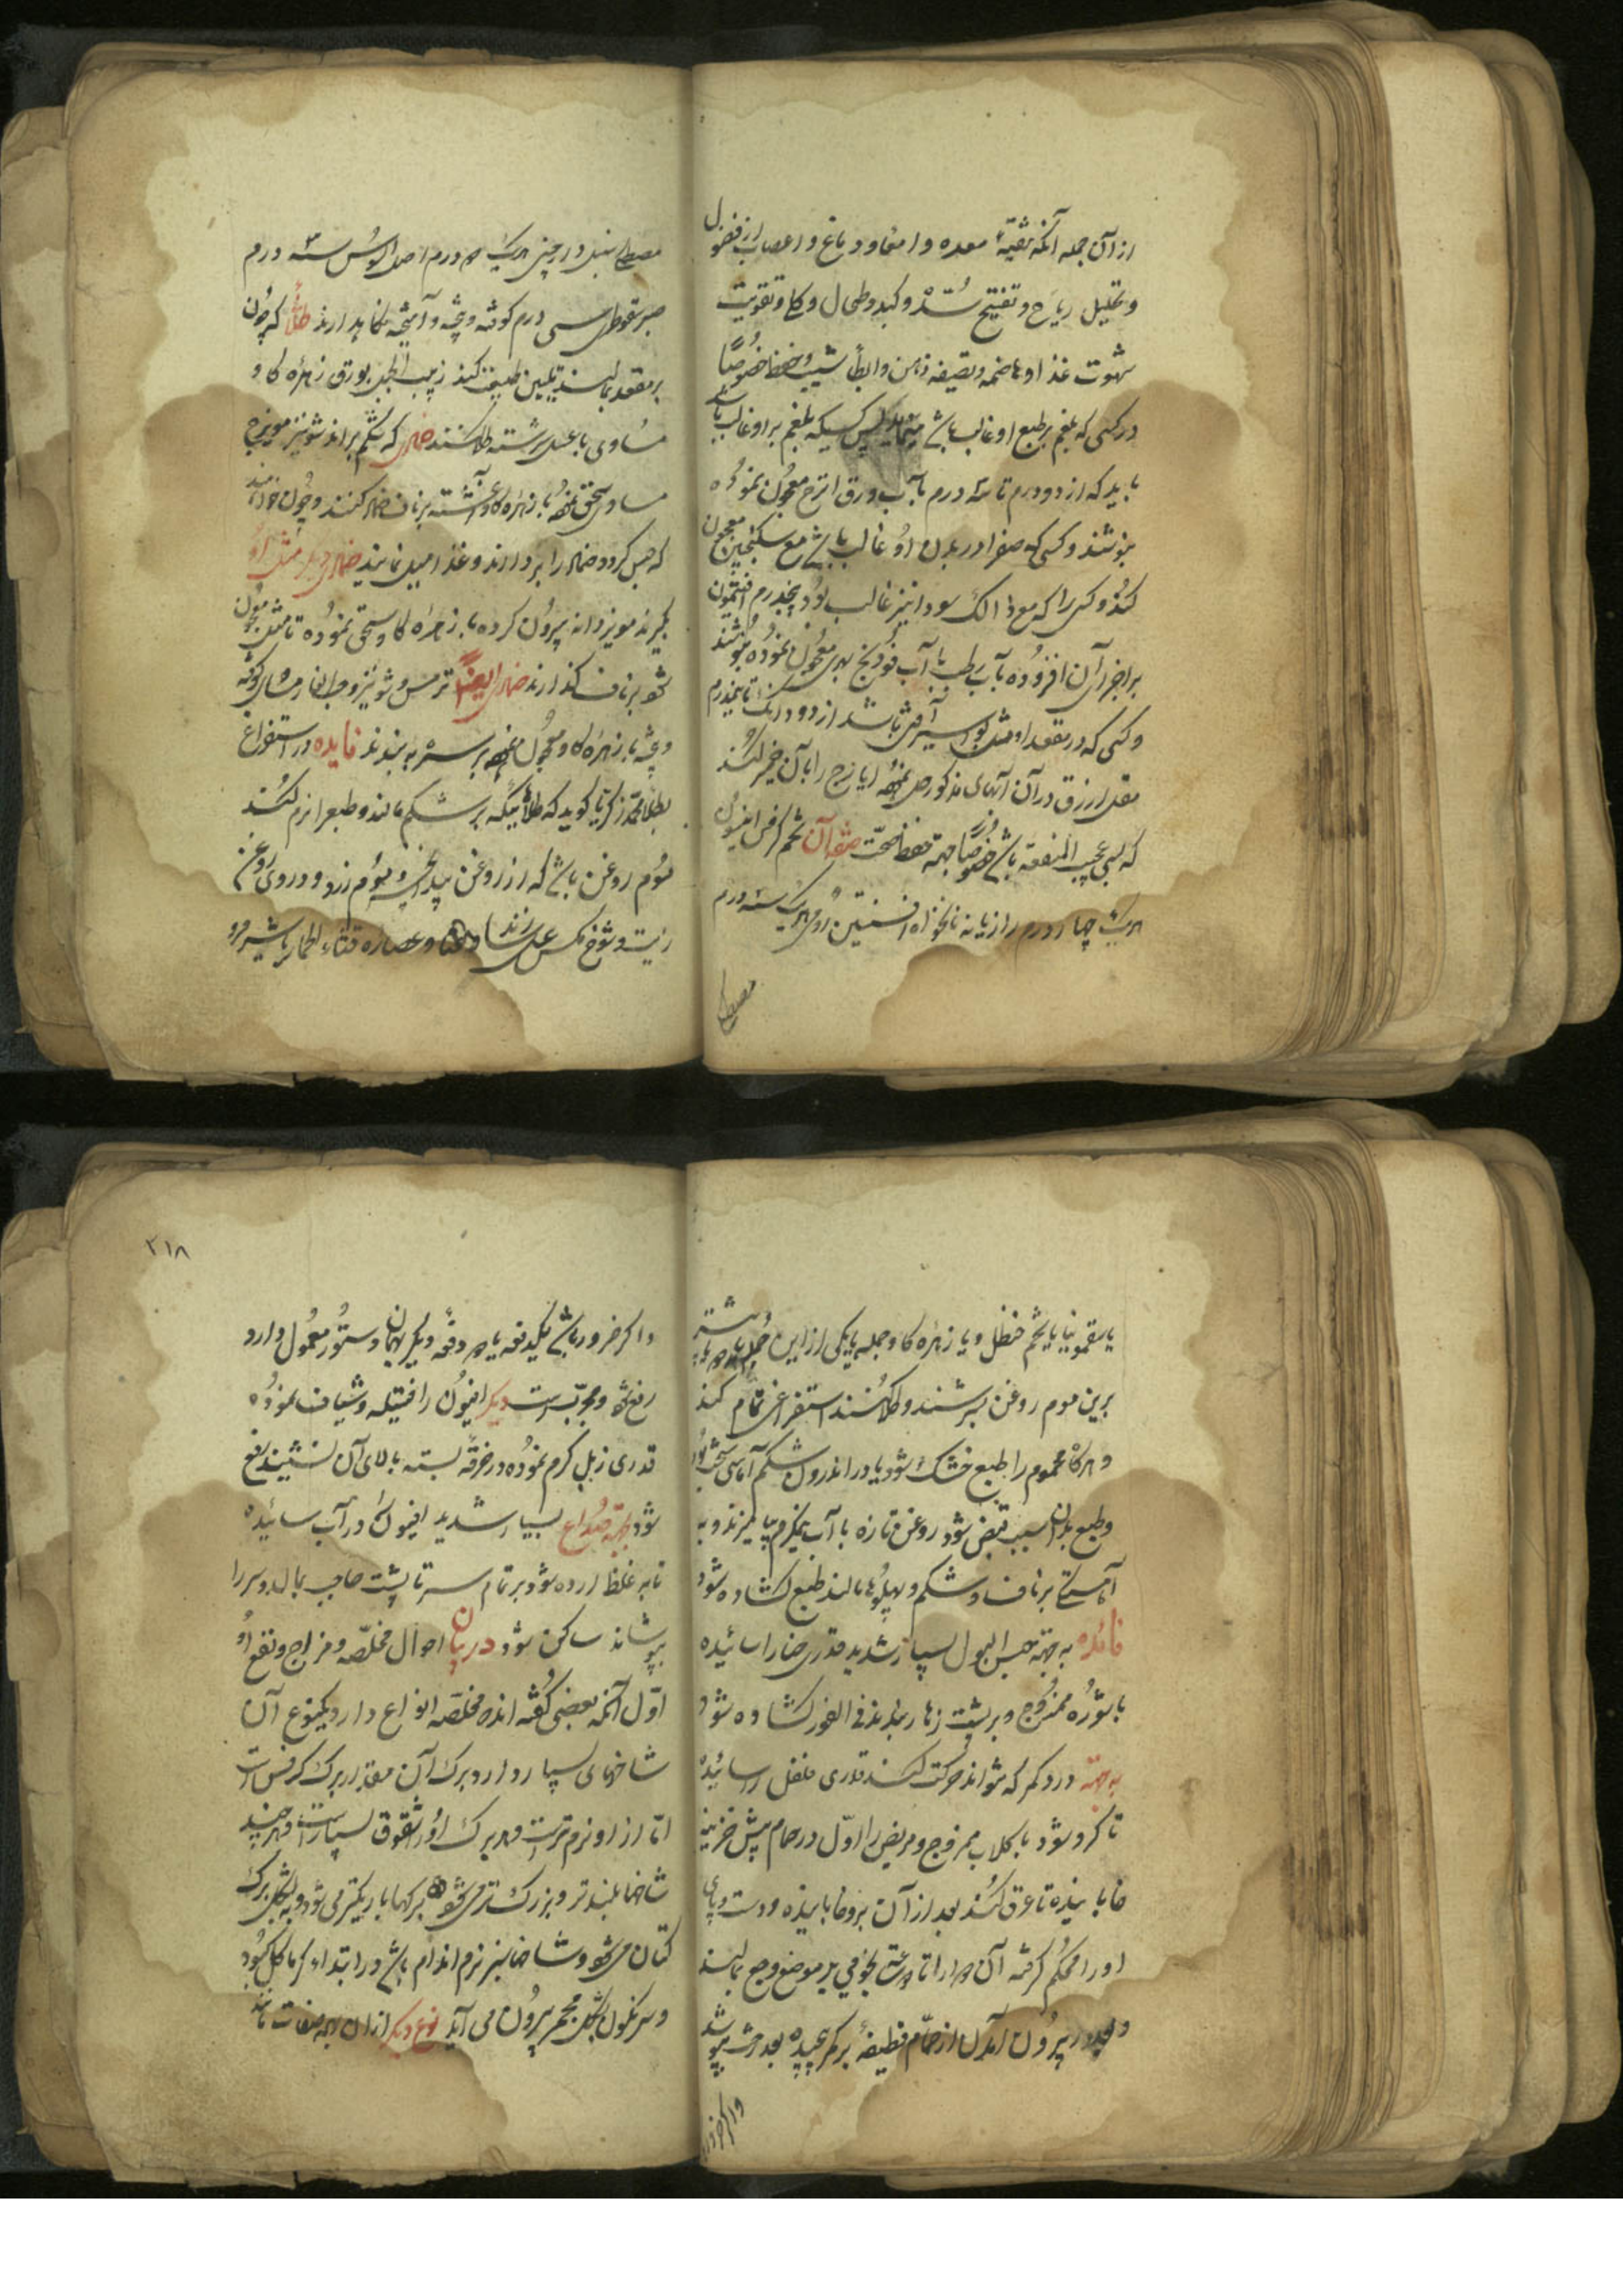 از آن جمله آنکه تنقیهٔ معده و امعا و دماغ و اعصاب از فضول
و تحلیل ریاح و تفتیح سُدد و کبد و طحال و کلا و تقویت
شهوت غذا و هاضمه و تصفیه ذهن و ابطأ شیب و حفظ خصُوصًا
در کسی که بلغم بر طبع او غالب باشد کسیکه بلغم بر او غالب باشد
باید که از دو درم تا سه درم بآب ورق اترج معجُون نمُوده
بنوشند و کسی که صفرا در بدن اوُ غالب باشد مع سکنجبین معجون
کند و کسی را که مع ذالک سودا نیز غالب بود پنجدرم افتیمون
بر اجزای آن افزُوده بآب رطب یا آب فوُدنج معجُون نموُده بنوشند
و کسی که در مقعد او مثل بواسیر آفتی باشد از دو دانک تا نیمدرم
مقل ازرق در آن آبهای مذکور حل نموُده ایارج را بآن خمیر کند
که بسی عجیب المنفعة باشد خصُوصًا جهة حفظ صحّت صفة آن تخم کرفس انیسوُن
هریک چهار درم رازیانه نانخواه افسنتین روُمی هریک سه درم
مصطکی
مصطکی سنبل دارچینی هریک درم اصل السوُس سه درم
صبر سقوطری سی درم کوفته و بیخته و آمیخته نگاه بدارند طلأ که چُون
بر مقعد بمالند تلیین طبیعت کند زبیب الجبل بورق زهرهٔ کاو
مُساوی با عسل سرشته طلا کنند ضماد که شکم براند شونیز مویزج
مساوی سحق نموُده با زهره کاو سرشته بر ناف ضماد کنند و چُون خواهند
که حبس کردد ضماد را بردارند و غذا میل نمایند ضماد دیکر مثل اوُ
بکیرند مویز دانه بیرُون کرده با زهرهٔ کاو سحق نموُده تا مثل معجُون
شود بر ناف کذارند ضماد ایضًا ترمس و شونیز و مساوی کوفته
و بیخته با زهره کاو معجُون نموُده بر سره به بندند فایده در استفراغ
بطلا محمّد زکریّا کوید که طلأئیکه بر شکم مالند و طبع را نرم کنند
موُم روغن باشد که از روغن بید انجیر و موُم زرد و دردی روُغن
زیت و شوخ مکس عسل سازند و عصاره قثاء الحمار یا شبرم و
یا سقمونیا یا تخم حنظل و یا زهرهٔ کاو جمله یا یکی از این جُمله
برین موم روغن بسرشند و طلا کنند استفراغی تمام کند
و هرکاه محموم را طبع خشک شود یا در اندرون شکم آماسی سخت بوُد
و طبع بدان سبب قبض شود روغن تازه با آب نیمکرم بیامیزند و به
آهستکی بر ناف و شکم و پهلوُها مالند طبع کشاده شود
فائده به جهة حبس البول بسیار شدید قدری حنا را سائیده
با شوره ممزوج و بر پشت زهار بندند فی الفور کشاده شود
به جهة درد کمر که نتواند حرکت کند قدری فلفل را سائیده
تا کرد شود با کلاب ممزوج و مریض را اوّل در حمام پیش خزینه
خوابانیده تا عرق کند بعد از آن بر رو خوابانیده و دست و پای
او را محکُم کرفته آن دوا را تا ساعت بخوبی بر موضع وجع بمالند
و بمجرد بیرُون آمدن از حمّام قطیفهٔ بر کمر پیچیده بعد رخت بپوشد
و اکر ضرور
۲۱۸
و اکر ضرور باشد یکدفعه یا دو دفعه دیکر بهمان دستُور معمُول دارد
رفع شود و مجرّبست دیکر افیوُن را فتیله و شیاف نموُده
قدری زبل کرم نموُده در خرقه بسته بالای آن نشیند رفع
شود بجهة صُداع بسیار شدید افیوُن را در آب سائیده
تا به غلظ ارده شود بر تمام سر تا پشت حاجب بمالد و سر را
بپوشاند ساکن شود در بیان احوال مخلّصه و مزاج و نفع اوُ
اوّل آنکه بعضی کُفته اند مخلّصه انواع دارد یکنوع آن
شاخهای بسیار دارد و برک آن مقدار برک کرفس است
امّا از او نرم تر است و هر برک اوُ را شقوق بسیار است و هر چند
شاخها بلند تر و بزرک تر می شود برکها باریکتر می شود و به شکل برک
کتان می شود و شاخها سبز نرم اندام باشد و در ابتداء کرما کل کُند
و سرنکون بشکل مجمر بیروُن می آید نوع دیکر از آن همه صفات باشد